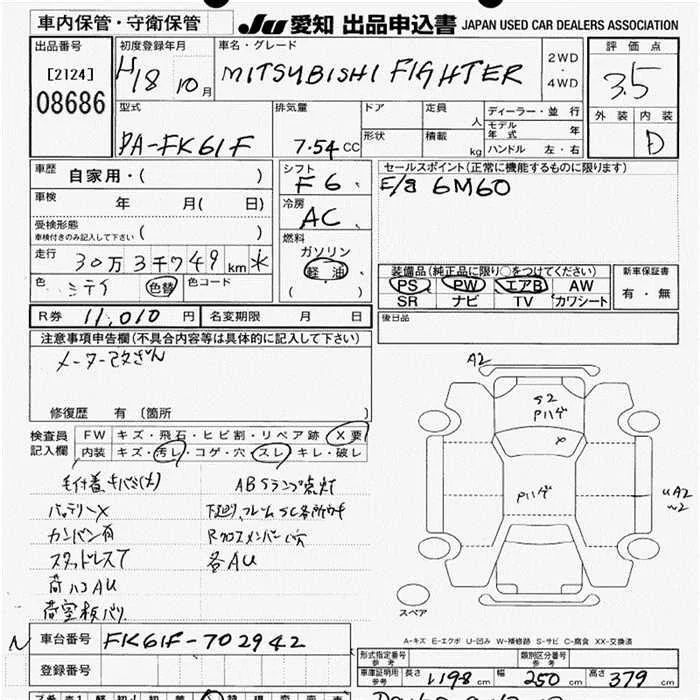 車内保管・守衛保管 JU 愛知 出品申込書 JAPAN USED CAR DEALERS ASSOCIATION
出品番号 初度登録年月 車名・グレード 評価点
[2124] H18 10月 MITSUBISHI FIGHTER 2WD・4WD 3.5
08686
型式 排気量 ドア 定員 人 ディーラー・並行 外装 内装
モデル年式 年
PA-FK61F 7.54 CC 形状 積載 kg ハンドル 左・右 D
車歴 自家用・( ) シフト F6 セールスポイント(正常に機能するものに限ります)
車検 年 月( 日) 冷房 AC E/g 6M60
受検形態
車検付きのみ記入して下さい ( ) 燃料
走行 30万3千749km * ガソリン
軽油
( )
装備品(純正品に限り○をつけてください) 新車保証書
色 シテイ 色替 色コード PS PW エアB AW 有・無
SR ナビ TV カワシート
R券 11,010 円 名変期限 月 日 後日品
注意事項申告欄(不具合内容等は具体的に記入して下さい)
メーター改ざん
修復歴 有 (箇所 )
A2
S2
Pハゲ
×
Pハゲ
A2
検査員 FW キズ・飛石・ヒビ割・リペア跡・X要
記入欄 内装 キズ・汚レ・コゲ・穴・スレ・キレ・破レ
ABSランプ点灯
バッテリーX
カンバン有
スタッドレスT 各AU
荷ハコAU
スペア
A-キズ E-エクボ U-凹み W-補修跡 S-サビ C-腐食 XX-交換済
N 車台番号 FK61F-702942
登録番号
形式指定番号 参考 類別区分番号 参考
車庫証明用 参考 長さ 1198 幅 250 高さ 379